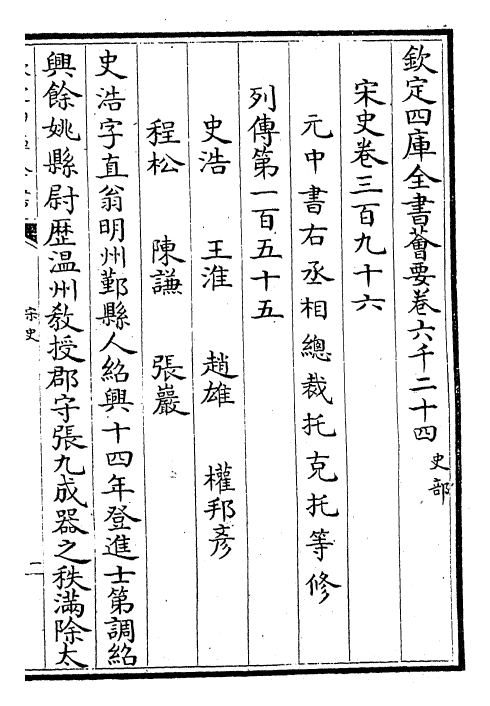 欽定四庫全書薈要卷六千二十四 史部
宋史卷三百九十六
元中書右丞相總裁托克托等修
列傳第一百五十五
史浩 王淮 趙雄 權邦彥
程松 陳謙 張巖
史浩字直翁明州鄞縣人紹興十四年登進士第調紹
興餘姚縣尉歴温州教授郡守張九成器之秩滿除太
宋史